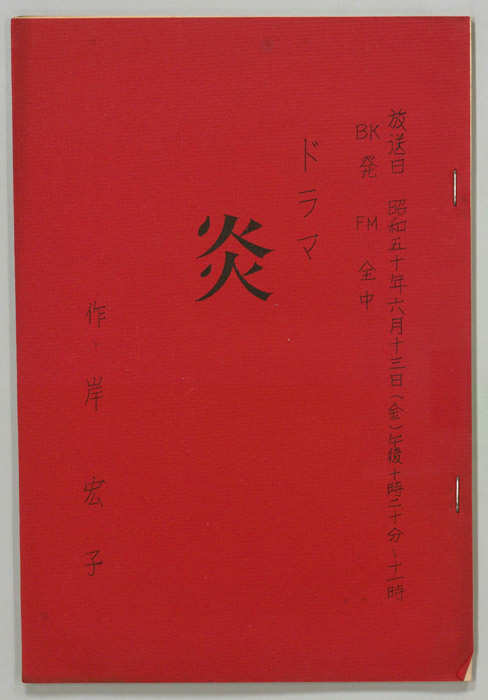 放送日 昭和五十年六月十三日(金)午後十時二十分〜十一時
BK発 FM・全中
ドラマ
炎
作・岸宏子